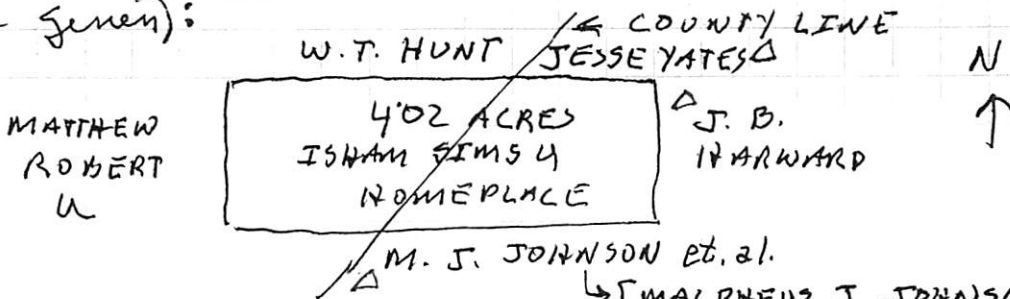 given):
← COUNTY LINE
W.T. HUNT JESSE YATES △
N
MATTHEW
ROBERT
U
402 ACRES
ISHAM SIMS U
HOMEPLACE
△ J. B.
HARWARD
△ M. J. JOHNSON et. al.